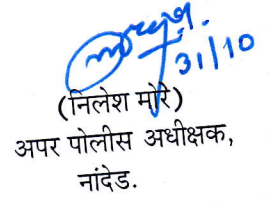 31/10
(निलेश मोरे)
अपर पोलीस अधीक्षक,
नांदेड.